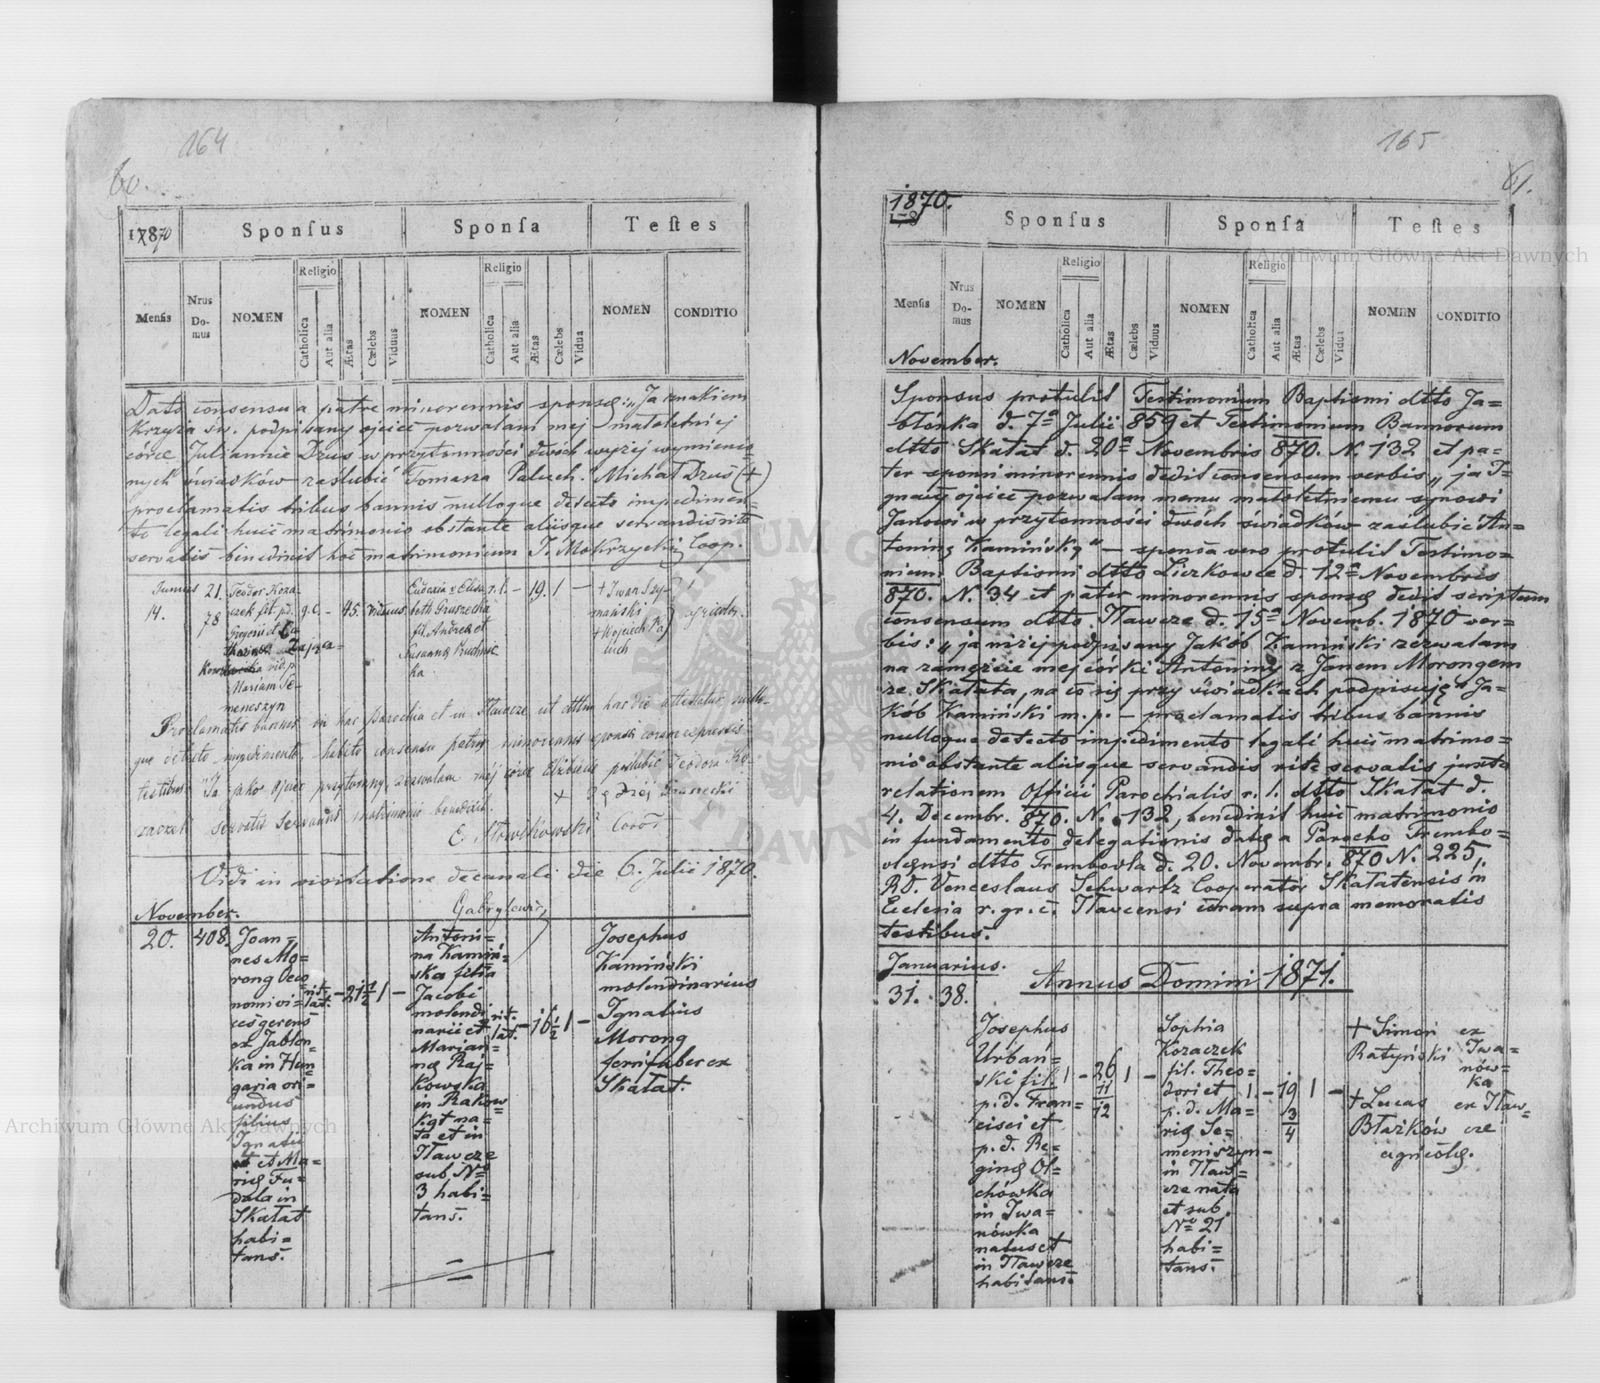 164
60.
1870
Sponsus
Sponsa
Testes
Mensis
Nrus Domus
NOMEN
Religio
Catholica
Aut alia
Ætas
Cælebs
Viduus
NOMEN
Religio
Catholica
Aut alia
Ætas
Cælebs
Vidua
NOMEN
CONDITIO
Dato consensu a patre minorennis sponsæ: "Ja znakiem
krzyża św. podpisany ojciec pozwalam mej małoletniej
córce Juliannie Druś w przytomności dwóch wyżej wymienio=
nych świadków zaślubić Tomasza Paluch. Michał Druś (+)
proclamatis tribus bannis nulloque detecto impedimen=
to legali huic matrimonio obstante aliisque servandis rite
servatis benedixit hoc matrimonium J. Mokrzycki Coop.
Junius
14.
21.
78
Teodor Koza
czek fil. p.d.
Gregorii et
Zajca
vid. p.
Mariam Se-
meneszyn
g.c. - 45. viduus
Eudoxia v. Elisa
beth Gruszecka
fil. Andreæ et
Susanna Kuchnic
ka
r.l. - 19. 1 -
+ Iwan Szy-
mański
+ Wojciech Pa
luch
agricolæ.
Proclamatis bannis in hac Parochia et in Iławcze ut dttm hac die attestatur nullo-
que detecto impedimento, habito consensu patris minorennis sponsæ coram expressis
testibus "Ja jako ojciec przytomny, zezwalam mej córce Elżbiecie poślubić Teodora Ko-
zaczek
+ Gruszecki
servatis servandis matrimonio benedixit.
E. Słowikowski Coop.
Vidi in visitatione decanali die 6. Julii 1870.
Gabrylewicz
November.
20. 408.
Joan=
nes Mo=
rong Oeco
nomi vi=
ces gerens
ex Jablon=
ka in Hun=
garia ori=
undus
filius
Ignatii
et Ma=
riæ Fu=
dala in
Skałat
habi=
tans.
rit. lat. - 21 1/2 1 -
Antoni=
na Kamiń=
ska filia
Jacobi
molendi
narii et
Marian=
næ Raj=
kowska
in Rakow
kąt na=
ta et in
Iławcze
sub No
3 habi=
tans.
rit. lat. - 16 1/2 1 -
Josephus
Kamiński
molendinarius
Ignatius
Morong
ferrifaber ex
Skałat.
165
61.
1870.
Sponsus
Sponsa
Testes
Mensis
Nrus Domus
NOMEN
Religio
Catholica
Aut alia
Ætas
Cælebs
Viduus
NOMEN
Religio
Catholica
Aut alia
Ætas
Cælebs
Vidua
NOMEN
CONDITIO
November.
Sponsus protulit Testimonium Baptismi dtto Ja=
błónka d. 7a Julii 859 et Testimonium Bannorum
dtto Skałat d. 20a Novembris 870. N. 132 et pa=
ter sponsi minorennis dedit consensum verbis "ja I=
gnacy ojciec pozwalam memu małoletniemu synowi
Janowi w przytomności dwóch świadków zaślubić An=
toninę Kamińską" - sponsa vero protulit Testimo=
nium Baptismi dtto Liczkowce d. 12a Novembris
870. N. 34 et pater minorennis sponsæ dedit scriptum
consensum dtto. Iławcze d. 15a Novemb. 1870 ver=
bis: "ja niżej podpisany Jakób Kamiński zezwalam
na zamęście mej córki Antoniny z Janem Morongem
ze Skałata, na co się przy świadkach podpisuję" Ja=
kób Kamiński m.p. - proclamatis tribus bannis
nulloque detecto impedimento legali huic matrimo=
nio obstante aliisque servandis rite servatis juxta
relationem Officii Parochialis r. l. dtto Skałat d.
4. Decembr. 870. N. 132, benedixit huic matrimonio
in fundamento delegationis datæ a Parocho Trembo=
vlensi dtto Trembovla d. 20. Novembr. 870 N. 225,
RD. Venceslaus Schwartz Cooperator Skałatensis in
Ecclesia r. gr. c. Iławcensi coram supra memoratis
testibus.
Januarius.
Annus Domini 1871.
31. 38.
Josephus
Urbań=
ski fil.
p.d. Fran=
cisci et
p.d. Re=
ginæ Ol=
chówka
in Iwa=
nówka
natus et
in Iławcze
habitans.
1 - 26 11/12 1 -
Sophia
Kozaczek
fil. Theo=
dori et
p.d. Ma=
riæ Se=
meniszyn
in Iław=
cze nata
et sub
No 21
habi=
tans.
1. - 19 3/4 1 -
+ Simon
Ratyński
ex
Iwa=
nów=
ka
+ Lucas
Błażków
ex Iław=
cze
agricolæ.
Archiwum Główne Akt Dawnych
Archiwum Główne Akt Dawnych